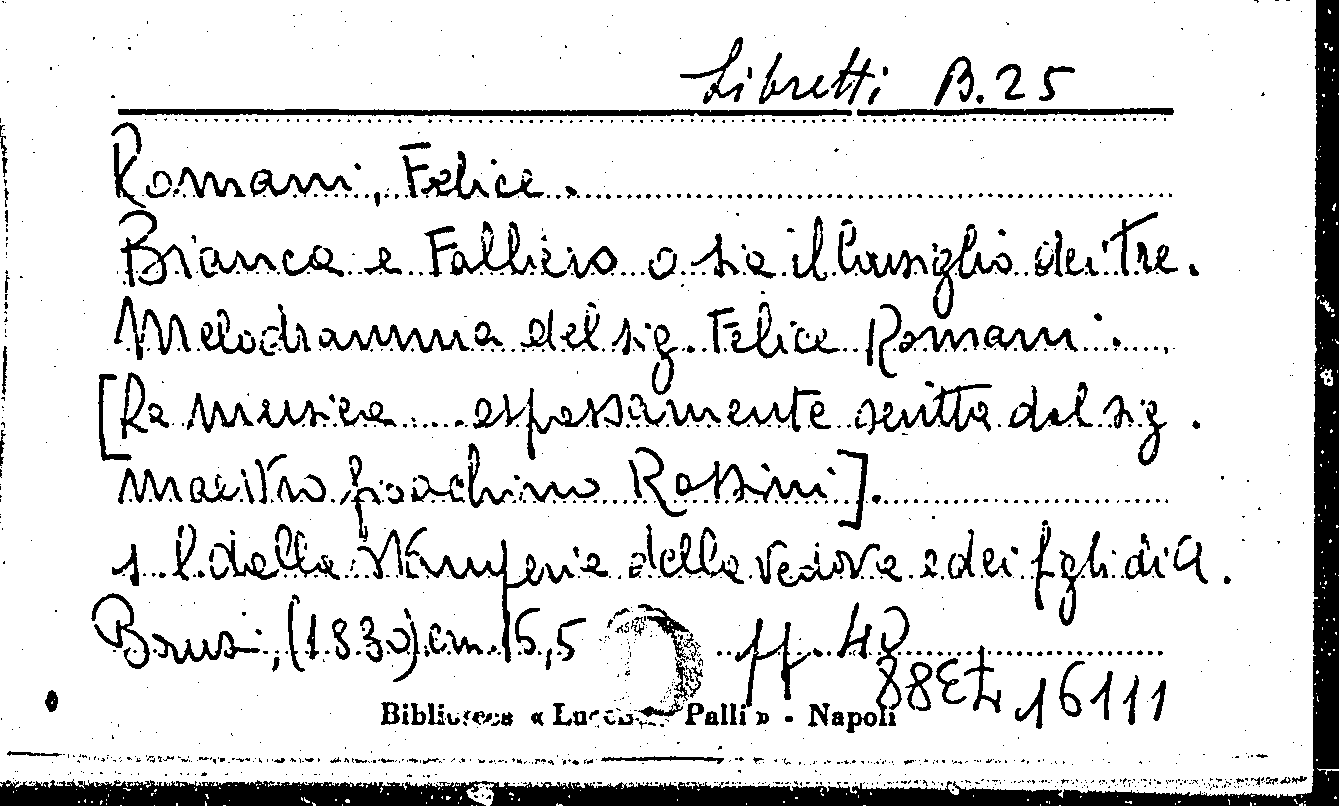 Libretti B.25
Romani, Felice.
Bianca e Falliero o sia il Consiglio dei Tre.
Melodramma del sig. Felice Romani.
[La musica ... espressamente scritta dal sig.
maestro Gioachino Rossini].
s.l. dalla stamperia della vedova e dei figli di A.
Brusi, (1830) cm. 15,5 pp. 40
16111
Biblioteca « Lucchesi Palli » - Napoli